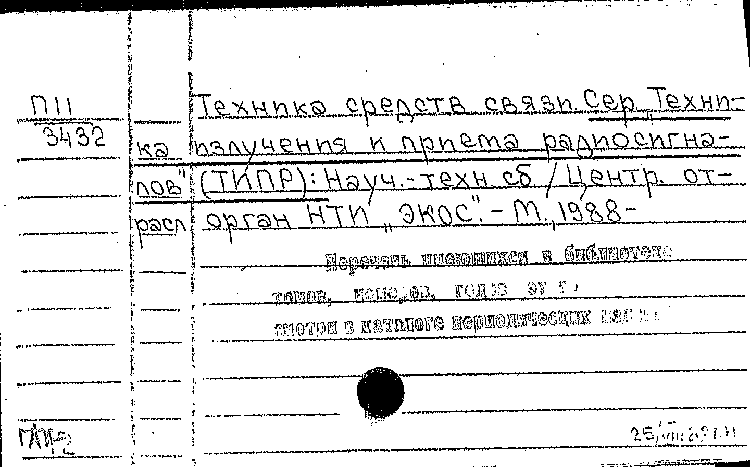 П11
3432
Техника средств связи. Сер. „Техни-
ка излучения и приема радиосигна-
лов" (ТИПР): Науч.-техн сб / Центр. от-
расл орган НТИ „ЭКОС". - М., 1988 -
Перечень имеющихся в библиотеке
томов, номеров, годов
смотри в каталоге периодических